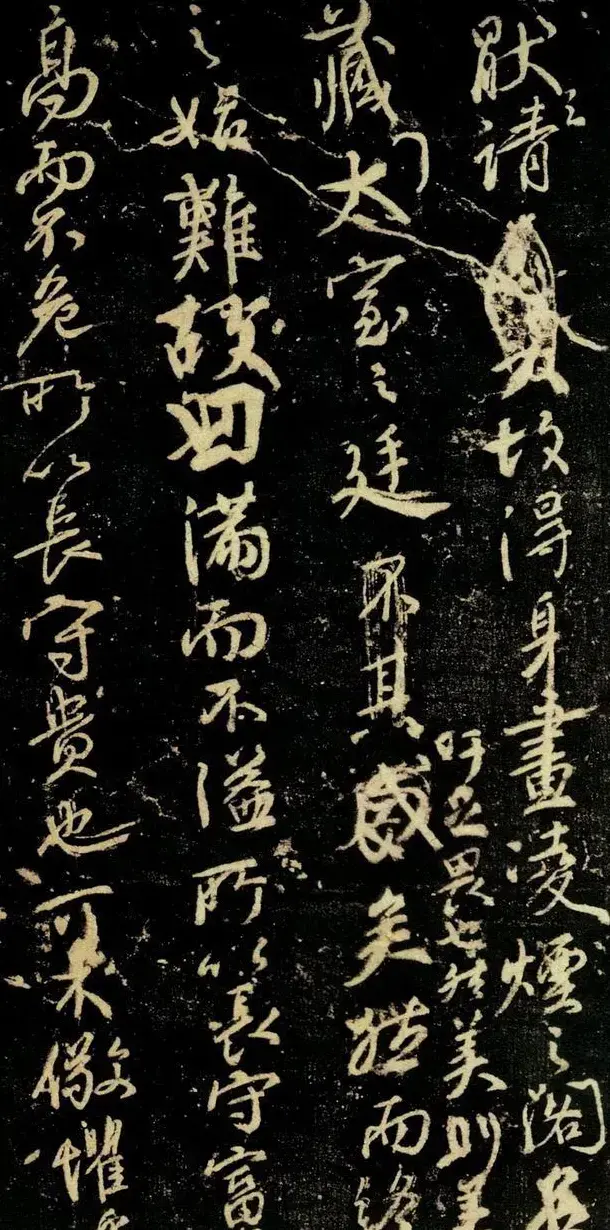 厭之請故得身畫凌煙之閣名
吁足畏也然美則美
藏太室之廷不其盛矣然而終
之始難故曰滿而不溢所以長守富
高而不危所以長守貴也可不儆懼